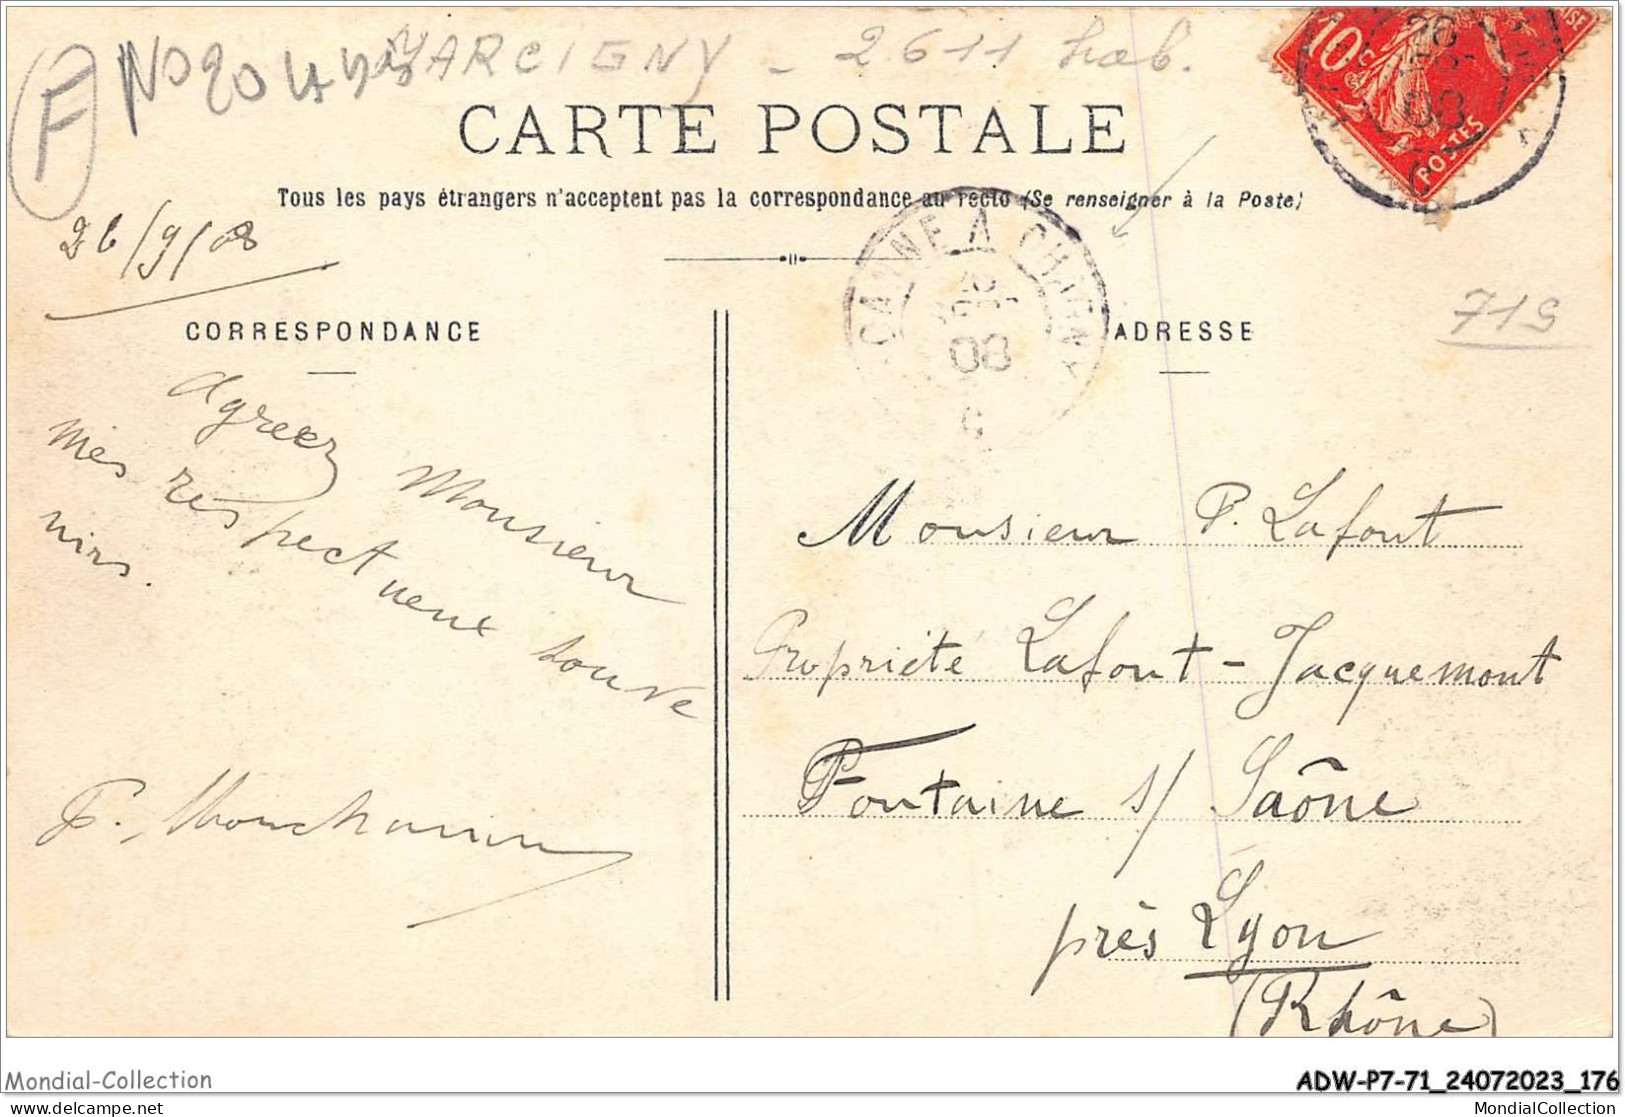 F
MARCIGNY - 2.611 hab.
CARTE POSTALE
Tous les pays étrangers n'acceptent pas la correspondance au recto (Se renseigner à la Poste)
26/9/08
CORRESPONDANCE
Agréez Monsieur
mes respectueux souve
nirs.
ROANNE A CHAGNY
08
10
POSTES
08
ADRESSE
71S
Monsieur P. Lafont
Propriété Lafont-Jacquemont
Fontaine s/ Saône
près Lyon
(Rhône)
Mondial-Collection
www.delcampe.net
ADW-P7-71_24072023_176
MondialCollection